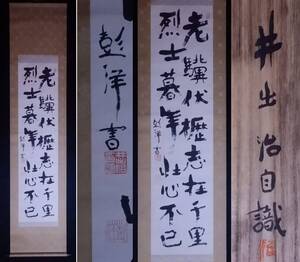 老驥伏櫪志在千里
烈士暮年壮心不已
彭洋書
彭洋書
老驥伏櫪志在千里
烈士暮年壮心不已
彭洋書
井出治自識